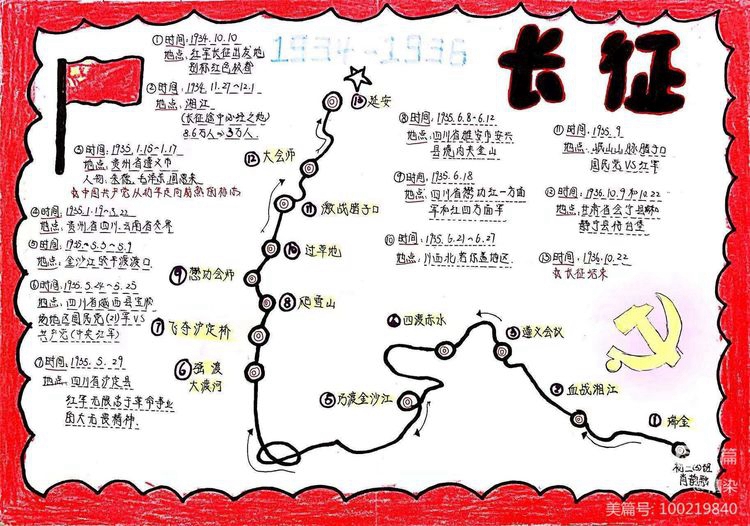 1934-1936
长征
①时间:1934.10.10
地点:红军长征出发地
别称红色故都
②时间:1934.11.27~12.1
地点:湘江
(长征途中必经之地)
8.6万人→3万人
③时间:1935.1.15~1.17
地点:贵州省遵义市
人物:朱德、毛泽东、周恩来
④时间:1935.1.19~3.22
地点:贵州省四川、云南省交界
⑤时间:1935~5.3~5.9
地点:金沙江皎平渡渡口
⑥时间:1935.5.24~5.25
国民党(21)军VS
共产党(中央红军)
⑦时间:1935.5.29
地点:四川省泸定县
红军无限忠于革命事业
的大无畏精神
⑧时间:1935.6.8~6.12
地点:四川省雅安市宝兴
县境内夹金山
⑨时间:1935.6.18
地点:四川省懋功红一方面
军和红四方面军
⑩时间:1935.6.21~6.27
地点:川西北若尔盖地区
⑪时间:1935.9
地点:岷山山脉腊子口
国民党VS红军
⑫时间:1936.10.9和10.22
地点:甘肃省会宁县和
静宁县将台堡
⑬时间:1936.10.22
长征结束
⑬延安
⑫大会师
⑪激战腊子口
⑩过草地
⑨懋功会师
⑧爬雪山
⑦飞夺泸定桥
⑥强渡
大渡河
⑤巧渡金沙江
④四渡赤水
③遵义会议
②血战湘江
①瑞金
美篇号:100219840